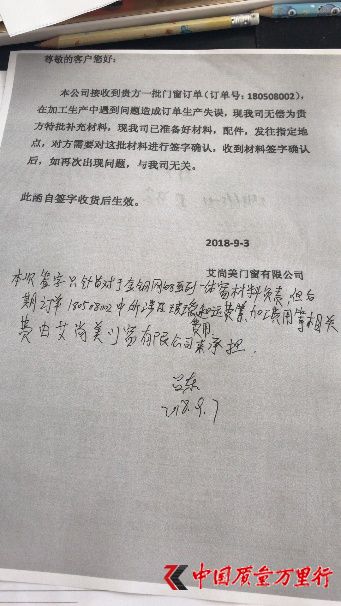 尊敬的客户您好:
本公司接收到贵方一批门窗订单(订单号:180508002),
在加工生产中遇到问题造成订单生产失误,现我司无偿为贵
方特批补充材料,现我司已准备好材料,配件,发往指定地
点,对方需要对这批材料进行签字确认,收到材料签字确认
后,如再次出现问题,与我司无关。
此函自签字收货后生效。
2018-9-3
艾尚美门窗有限公司
本次签字只针对于金钢网 一体窗材料负责,但后
期订单180508002中所涉及玻璃 运费 加工费用等相关
费用
费由艾尚美门窗有限公司来承担.
2018.9.7
中国质量万里行